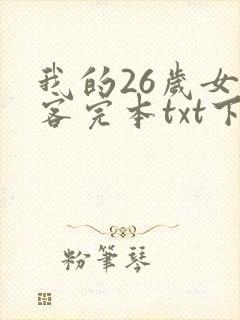 我的26歲女
客完本txt下
粉筆琴